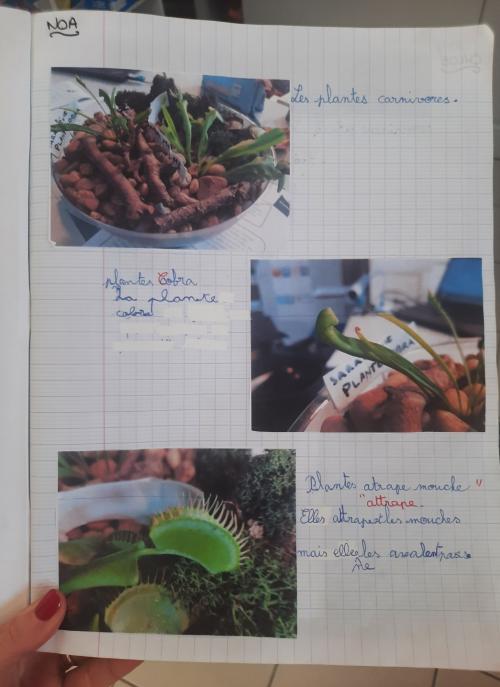 NOA
Les plantes carnivores.
plantes Cobra
La plante
cobra
PLANTE COBRA
Plantes atrape mouche "
"attrape.
Elles attrapent les mouches
mais elles les avalent pas.
ne